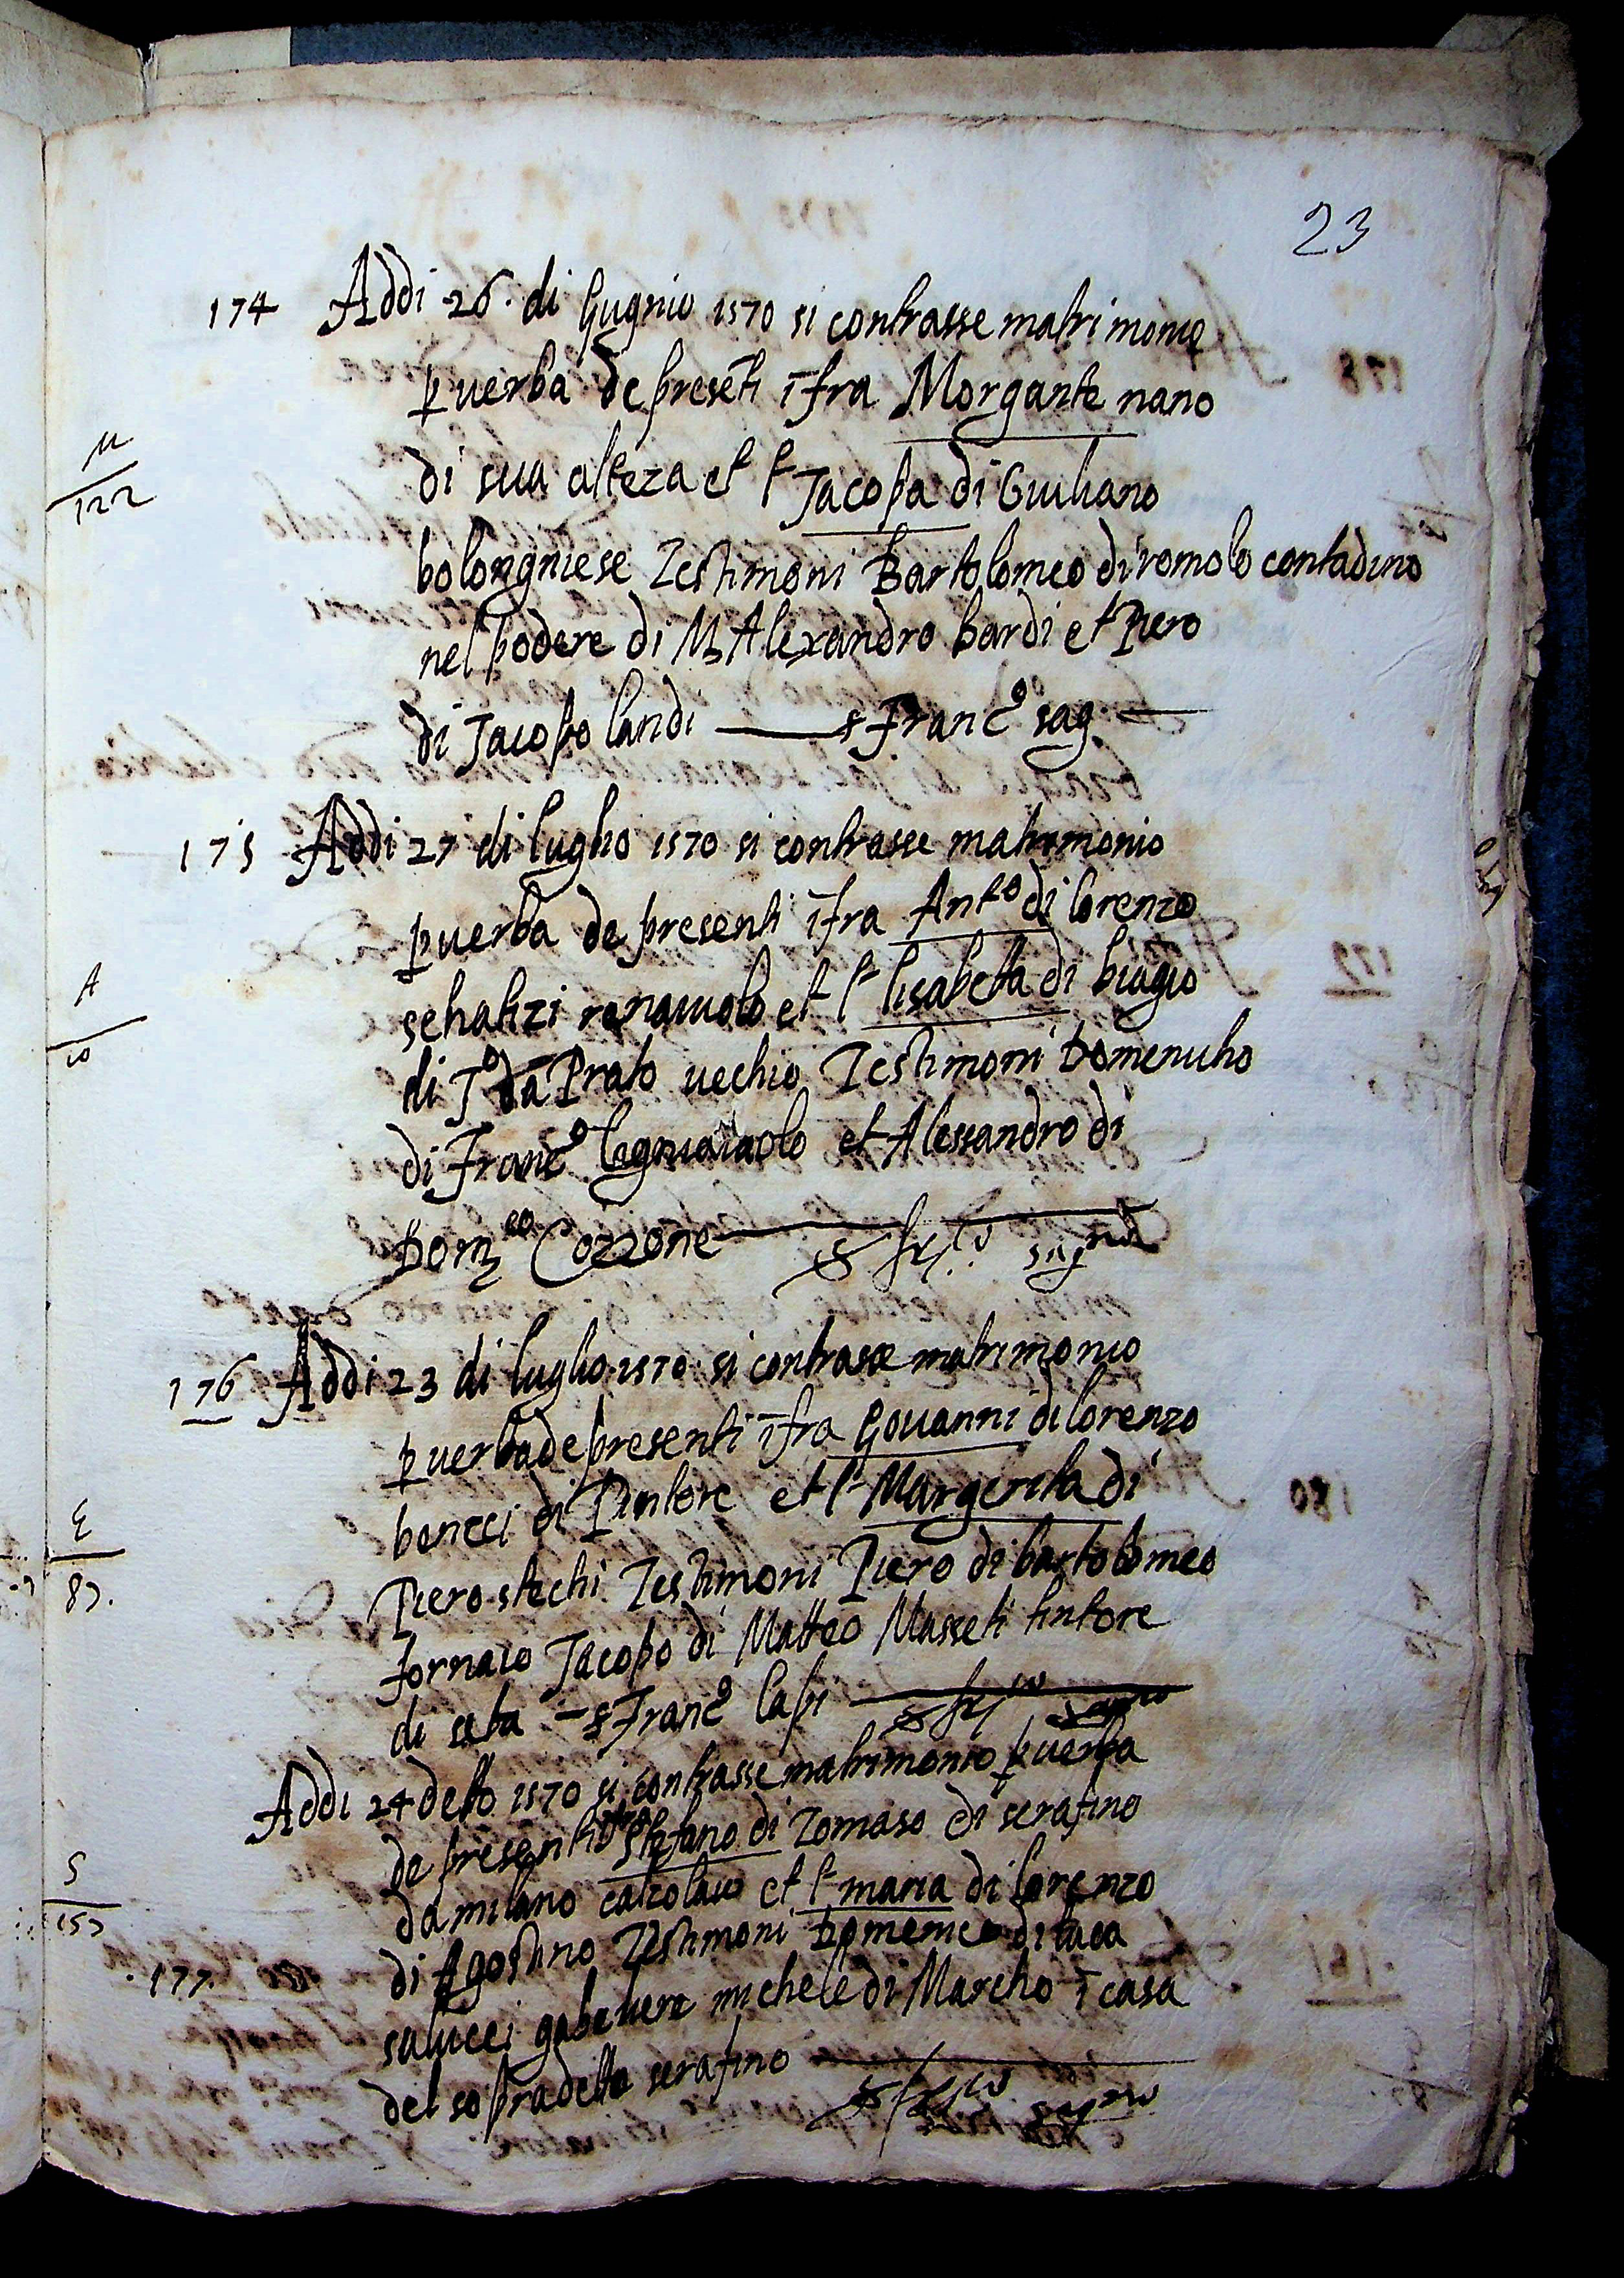 23
174 Addi 26 di Gugnio 1570 si contrasse matrimonio
p uerba de presēti ī fra Morgante nano
M
122
di sua alteza et lᵃ Jacopa di Giuliano
bolongniese Testimoni Bartolomeo di romolo contadino
nel podere di M Alexandro bardi et Piero
di Jacopo landi — s Franc° sag —
175 Addi 27 di luglio 1570 si contrasse matrimonio
p uerba de presenti ī fra Antᵒ di lorenzo
A
10
renaiuolo et lᵃ lisabetta di biagio
di J° da Prato uechio Testimoni Domenicho
di Franc° legniaiuolo et Alessandro di
Domᶜᵒ Cozzone
176 Addi 23 di luglio 1570 si contrasse matrimonio
p uerba de presenti ī fra Gouanni di lorenzo
beneci di Pintore et lᵃ Margerita di
E
87.
Piero stechi Testimoni Piero di bartolomeo
fornaio Jacopo di Matteo Masseti tintore
di seta — s Franc° lapi
Addi 24 detto 1570 si contrasse matrimonio p uerba
de presenti stefano di Tomaso di serafino
S
157
da milano calzolaio et lᵃ maria di lorenzo
di Agostino Testimoni Domenico di luca
177
salucci gabeliere michele di Marcho ī casa
del sopradetto serafino